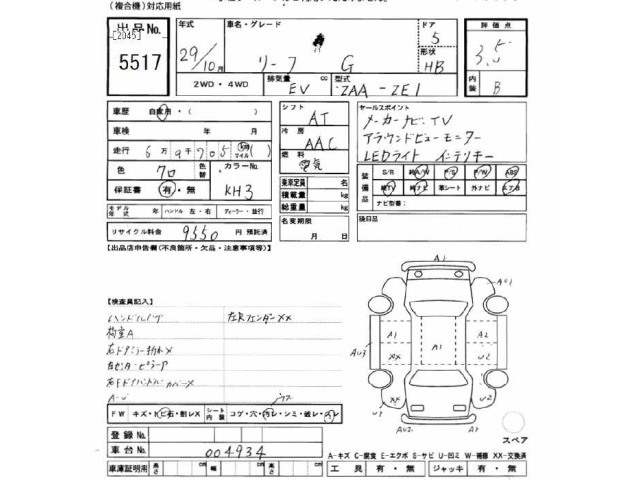 (複合機)対応用紙
出品No.
[2045]
5517
年式
29/10月
車名・グレード
リーフ G
ドア
5
形状
HB
評価点
3.5
内装
B
2WD・4WD
排気量
EV
cc
型式
ZAA-ZE1
車歴 自家用・( )
車検 年 月
走行 6万9千705 km マイル ( )
色 クロ 色替
カラーNo.
KH3
保証書 有・無
モデル年式 年 ハンドル 左・右 ディーラー・並行
リサイクル料金 9550 円 預託済
シフト
AT
冷房
AAC
燃料
電気
乗車定員 名
積載量 kg
総重量 kg
名変期限
月 日
セールスポイント
メーカーナビ.TV
アラウンドビューモニター
LEDライト インテリキー
装備品
S/R 純A/W P/S P/W ABS
純TV 純ナビ 革シート 外ナビ エアB
ナビ型番:
後日品
【出品店申告欄(不良箇所・欠品・注意事項等)】
【検査員記入】
ハンドルハゲ 左Rフェンダー××
右ドアミラー折れ×
左センターピラーア
A-U
FW キズ・トビ石・割レX
シート内装 コゲ・穴・汚レ・シミ・破レ・スレ
登録No.
車台No. 004934
車庫証明用 長さ cm 幅 cm 高さ cm
A1
AU1
AU3
A1
XX
A1
A2
U2
U1
XX
U2
AU2
A1
スペア
A-キズ C-腐食 E-エクボ S-サビ U-凹ミ W-補修 XX-交換済
工具 有・無 ジャッキ 有・無